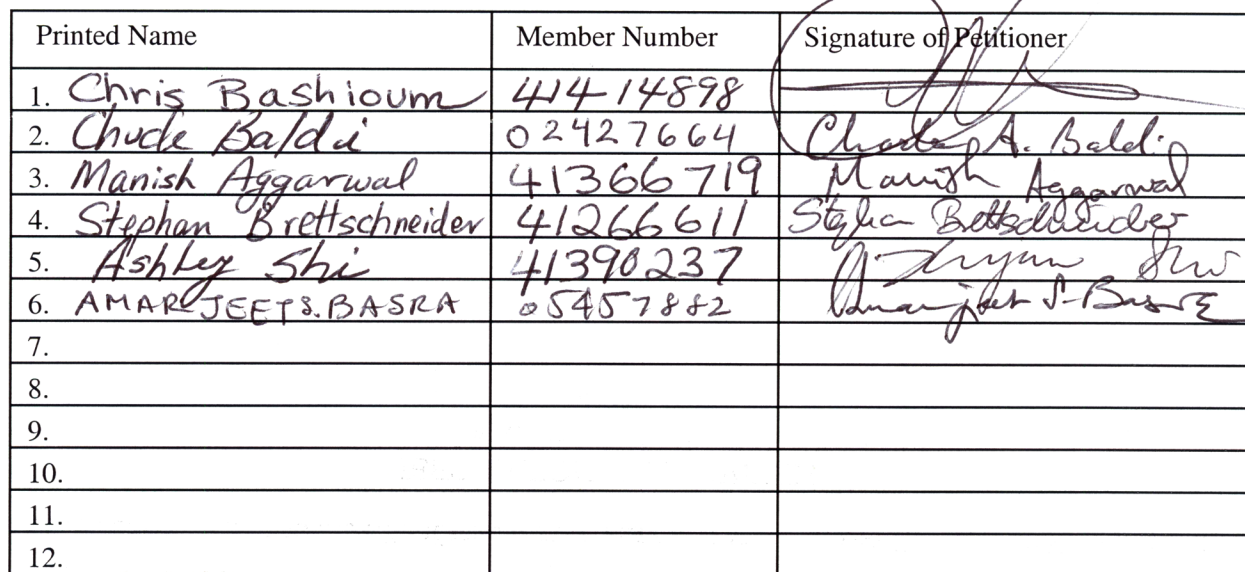 Printed Name Member Number Signature of Petitioner
1. Chris Bashioum 41414898
2. Chuck Baldi 02427664 Charles A. Baldi
3. Manish Aggarwal 41366719 Manish Aggarwal
4. Stephan Brettschneider 41266611 Stephan Brettschneider
5. Ashley Shi 41390237 Shi
6. AMARJEET S. BASRA 05457882 Amarjeet S. Basra
7.
8.
9.
10.
11.
12.